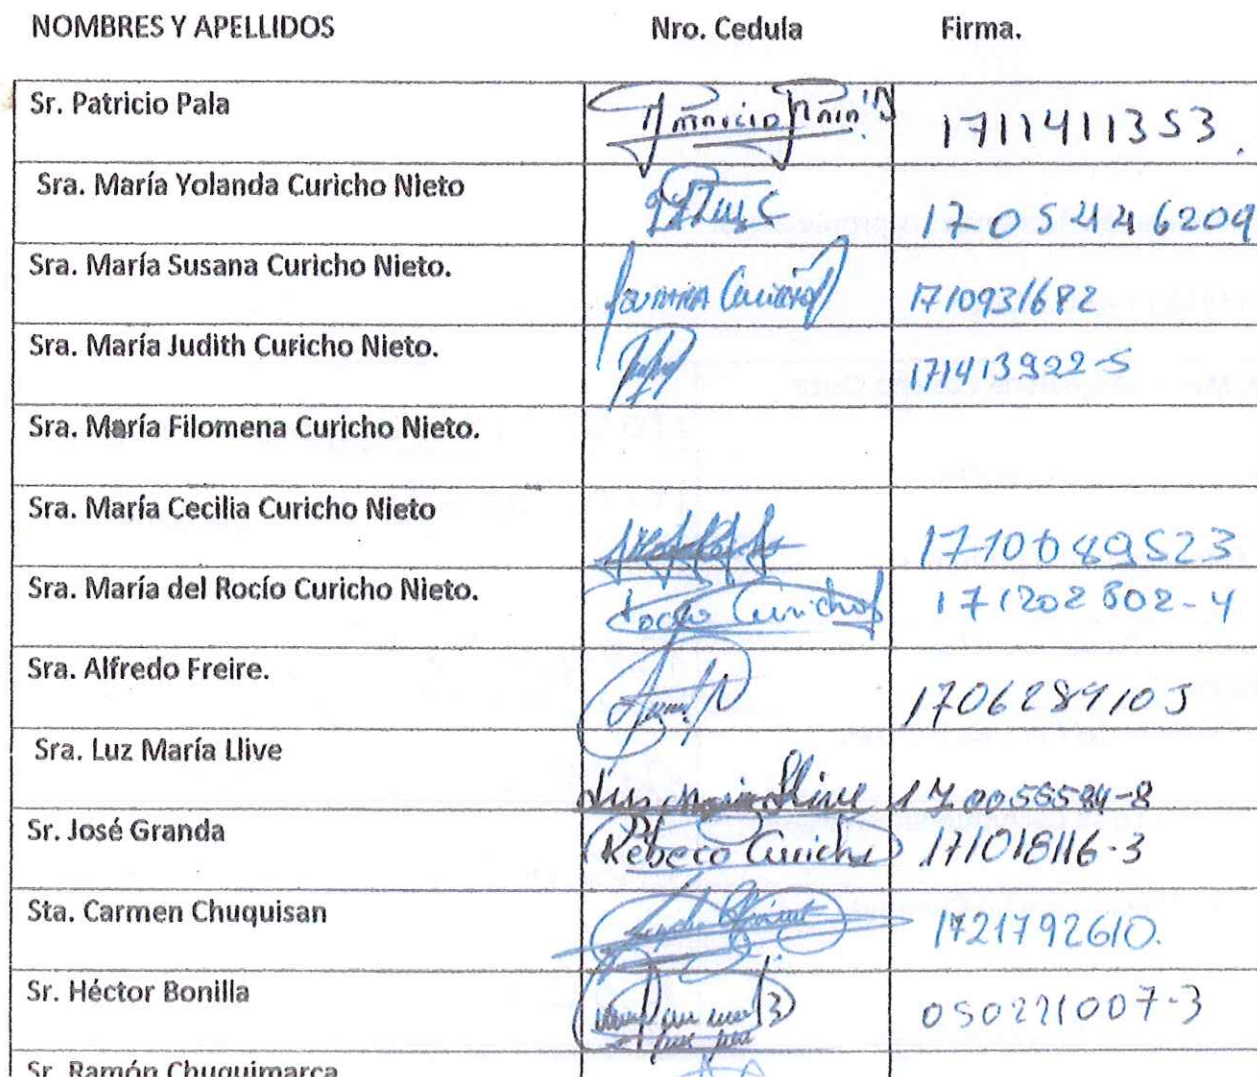 NOMBRES Y APELLIDOS Nro. Cedula Firma.
Sr. Patricio Pala 1711411353.
Sra. María Yolanda Curicho Nieto 1705446209
Sra. María Susana Curicho Nieto. Susana Curicho 1710931682
Sra. María Judith Curicho Nieto. 171413922-5
Sra. María Filomena Curicho Nieto.
Sra. María Cecilia Curicho Nieto 1710689523
Sra. María del Rocío Curicho Nieto. Rocio Curicho 171202802-4
Sra. Alfredo Freire.
Sra. Luz María Llive Luz Maria Llive
Sr. José Granda Rebeca Curicho 171018116-3
Sta. Carmen Chuquisan 1721792610.
Sr. Héctor Bonilla 050221007-3
Sr. Ramón Chuquimarca